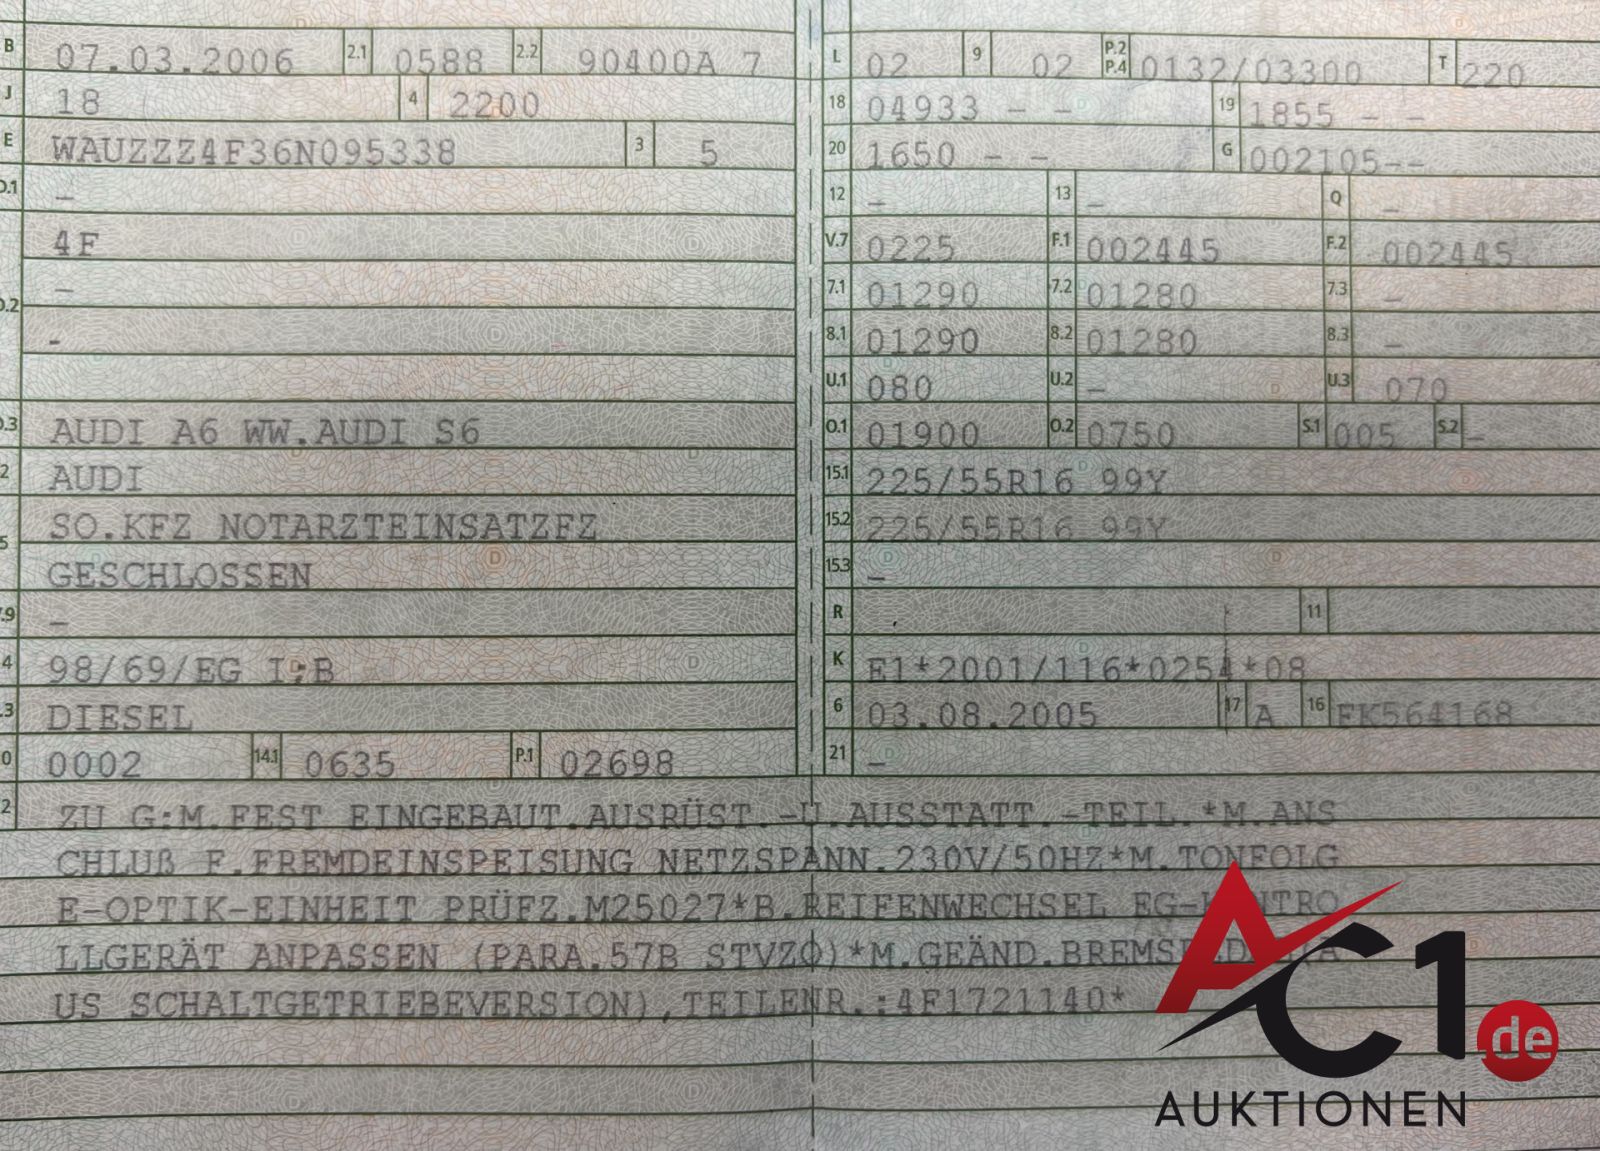 B 07.03.2006 2.1 0588 2.2 90400A 7
J 18 4 2200
E WAUZZZ4F36N095338 3 5
D.1 –
4F
–
D.2
-
D.3 AUDI A6 WW.AUDI S6
2 AUDI
5 SO.KFZ NOTARZTEINSATZFZ
GESCHLOSSEN
V.9 –
14 98/69/EG I;B
P.3 DIESEL
10 0002 14.1 0635 P.1 02698
L 02 9 02 P.2 P.4 0132/03300 T 220
18 04933 – – 19 1855 – –
20 1650 – – G 002105--
12 – 13 – Q –
V.7 0225 F.1 002445 F.2 002445
7.1 01290 7.2 01280 7.3 –
8.1 01290 8.2 01280 8.3 –
U.1 080 U.2 – U.3 070
O.1 01900 O.2 0750 S.1 005 S.2 –
15.1 225/55R16 99Y
15.2 225/55R16 99Y
15.3 –
R 11
K E1*2001/116*0254*08
6 03.08.2005 17 A 16 FK564168
21 –
22 ZU G:M.FEST EINGEBAUT.AUSRÜST.-U.AUSSTATT.-TEIL.*M.ANS
CHLUß F.FREMDEINSPEISUNG NETZSPANN.230V/50HZ*M.TONFOLG
E-OPTIK-EINHEIT PRÜFZ.M25027*B.REIFENWECHSEL EG-KONTRO
LLGERÄT ANPASSEN (PARA.57B STVZO)*M.GEÄND.BREMSPEDAL(A
US SCHALTGETRIEBEVERSION),TEILENR.:4F1721140*
AC1.de
AUKTIONEN